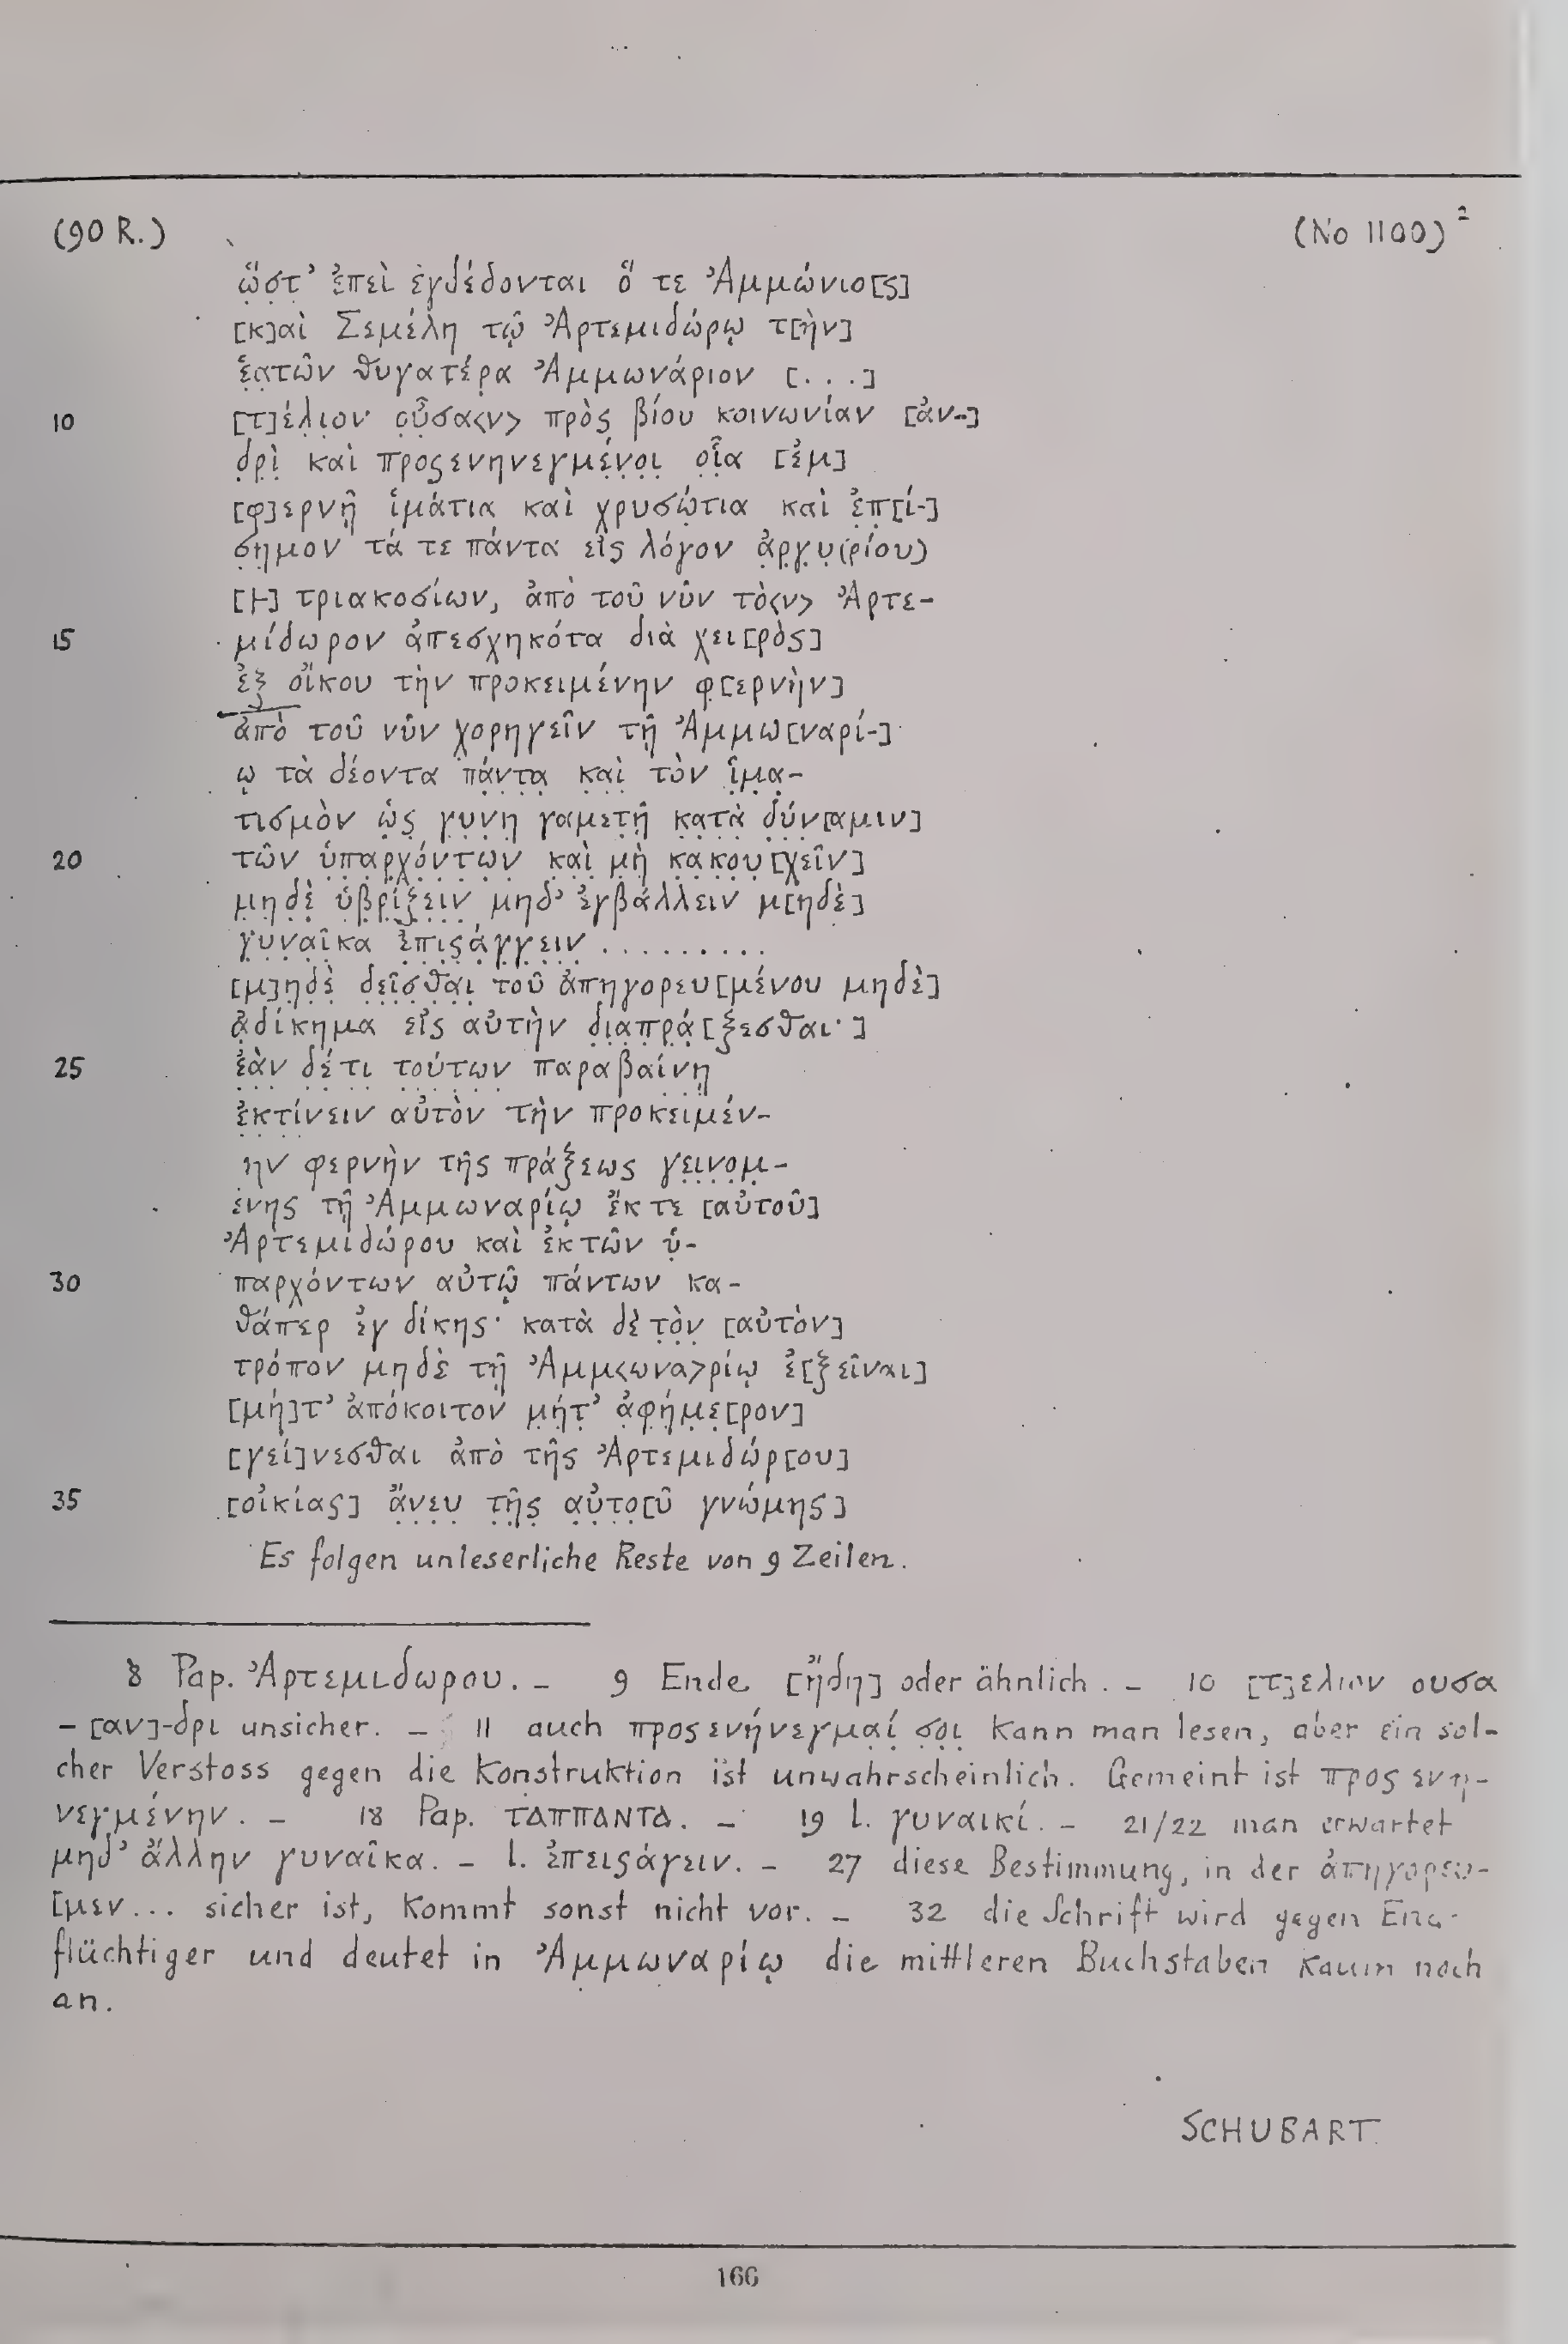 (90 R.) (No 1100) ²
ὥ̣στ' ἐπεὶ ἐγδέδονται ὅ τε Ἀμμώνιο[ς]
[κ]αὶ Σεμέλη τῷ Ἀρτεμιδώρῳ τ[ὴν]
ἑα̣τῶν θυγατέρ̣α Ἀμμωνάριον [...]
10 [τ]έλ̣ι̣ον ο̣ὖ̣σα<ν> πρὸς̣ βίου κοινωνίαν [ἀν-]
δ̣ρ̣ὶ̣ καὶ προςενηνεγμέ̣ν̣ο̣ι̣ ο̣ἷ̣α [ἐμ]
[φ]ερνῇ ἱμάτια καὶ χρυσώ̣τια καὶ ἐ̣π̣[ί-]
σ̣η̣μον τά τε πάντα εἰς λόγον ἀ̣ρ̣γ̣υ̣(ρίου)
[⊢] τριακοσίων, ἀπὸ τοῦ νῦν τὸ<ν> Ἀρτε-
15 μίδωρον ἀπεσχηκότα διὰ χει[ρὸς]
ἐξ οἴκου τὴν προκειμένην φ̣[ερνὴν]
ἀπὸ τοῦ νῦν χορηγεῖν τῇ Ἀμμω[ναρί-]
ῳ τὰ δέοντα πά̣ν̣τ̣α̣ κ̣α̣ὶ̣ τὸν ἱ̣μ̣α̣-
τισμὸν ὡ̣ς̣ γ̣υ̣ν̣η̣ γαμετ̣ῇ̣ κ̣α̣τ̣ὰ̣ δ̣ύ̣ν̣[αμιν]
20 τῶν ὑ̣π̣α̣ρ̣χ̣ό̣ν̣τ̣ω̣ν̣ κ̣α̣ὶ̣ μ̣ὴ̣ κ̣α̣κ̣ο̣υ̣[χεῖν]
μ̣η̣δ̣ὲ̣ ὑ̣β̣ρ̣ί̣ξ̣ε̣ι̣ν̣ μηδ' ἐγβάλλειν μ[ηδὲ]
γ̣υ̣ν̣α̣ῖ̣κα ἐ̣π̣ι̣ς̣ά̣γ̣γ̣ε̣ι̣ν̣ .........
[μ]η̣δ̣ὲ̣ δ̣ε̣ῖ̣σ̣θ̣α̣ι̣ τοῦ ἀπηγορευ[μένου μηδὲ]
ἀ̣δίκημα εἰς αὐτὴν δ̣ι̣α̣π̣ρ̣ά̣[ξεσθαι·]
25 ἐ̣ὰ̣ν̣ δ̣έ̣ τ̣ι̣ τ̣ο̣ύ̣τ̣ω̣ν̣ παραβαί̣ν̣ῃ̣
ἐ̣κ̣τ̣ί̣νειν αὐτὸν τὴν προκειμέν-
ην φερνὴν τῆς πράξεως γε̣ι̣ν̣ο̣μ̣-
ένης τῇ Ἀμμωναρίῳ ἔκ τε [αὐτοῦ]
Ἀρτεμιδώρου καὶ ἐκ τῶν ὑ̣-
30 παρχόντων αὐτῷ πάντων κα-
θάπερ ἐγ δίκης· κατὰ δὲ τ̣ὸ̣ν̣ [αὐτὸν]
τρόπον μηδὲ τῇ Ἀμμ<ωνα>ρίῳ ἐ̣[ξεῖναι]
[μή]τ' ἀπόκοιτον μ̣ή̣τ̣' ἀ̣φ̣ή̣μ̣ε̣[ρον]
[γεί]νεσθαι ἀπὸ τῆς Ἀρτεμιδώρ[ου]
35 [οἰκίας] ἄ̣ν̣ε̣υ̣ τ̣ῆ̣ς̣ α̣ὐ̣τ̣ο̣[ῦ γνώμης]
Es folgen unleserliche Reste von 9 Zeilen.
8 Pap. Ἀρτεμιδωρου. – 9 Ende [ἤδη] oder ähnlich. – 10 [τ]ελιον ουσα
– [αν]-δρι unsicher. – 11 auch προςενήνεγμα̣ί̣ σ̣ο̣ι̣ kann man lesen, aber ein sol-
cher Verstoss gegen die Konstruktion ist unwahrscheinlich. Gemeint ist προςενη-
νεγμένην. – 18 Pap. ΤΑΠΠΑΝΤΑ. – 19 l. γυναικί. – 21/22 man erwartet
μηδ' ἄλλην γυναῖκα. – l. ἐπειςάγειν. – 27 diese Bestimmung, in der ἀπηγορευ-
[μεν... sicher ist, kommt sonst nicht vor. – 32 die Schrift wird gegen Ende
flüchtiger und deutet in Ἀμμωναρίῳ die mittleren Buchstaben kaum noch
an.
SCHUBART
166